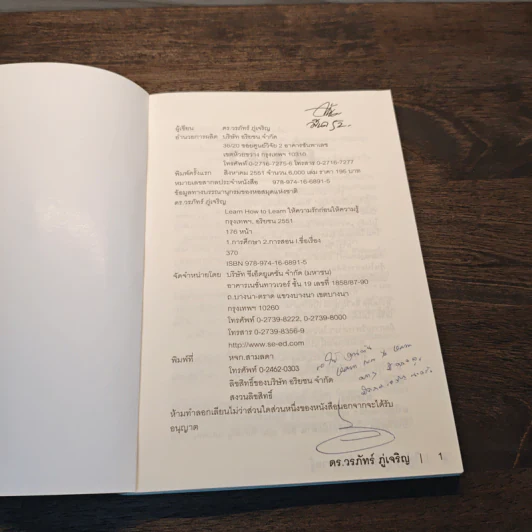 ผู้เขียน ดร.วรภัทร์ ภู่เจริญ
อำนวยการผลิต บริษัท อริยชน จำกัด
เขตห้วยขวาง กรุงเทพฯ 10310
โทรศัพท์ 0-2716-7275-6 โทรสาร 0-2716-7277
พิมพ์ครั้งแรก สิงหาคม 2551 จำนวน 6,000 เล่ม ราคา 195 บาท
หมายเลขสากลประจำหนังสือ 978-974-16-6891-5
ข้อมูลทางบรรณานุกรมของหอสมุดแห่งชาติ
ดร.วรภัทร์ ภู่เจริญ
Learn How to Learn ให้ความรักก่อนให้ความรู้
กรุงเทพฯ. อริยชน 2551
176 หน้า
1.การศึกษา 2.การสอน I.ชื่อเรื่อง
370
ISBN 978-974-16-6891-5
จัดจำหน่ายโดย บริษัท ซีเอ็ดยูเคชั่น จำกัด (มหาชน)
อาคารเนชั่นทาวเวอร์ ชั้น 19 เลขที่ 1858/87-90
ถ.บางนา-ตราด แขวงบางนา เขตบางนา
กรุงเทพฯ 10260
โทรศัพท์ 0-2739-8222, 0-2739-8000
โทรสาร 0-2739-8356-9
http://www.se-ed.com
พิมพ์ที่ หจก.สามลดา
โทรศัพท์ 0-2462-0303
ลิขสิทธิ์ของบริษัท อริยชน จำกัด
สงวนลิขสิทธิ์
ห้ามทำลอกเลียนไม่ว่าส่วนใดส่วนหนึ่งของหนังสือนอกจากจะได้รับ
อนุญาต
ดร.วรภัทร์ ภู่เจริญ | 1